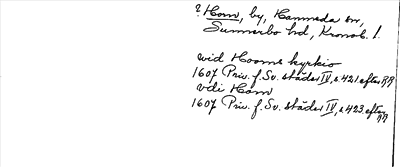 ? Horn, by, Hanneda sn,
Sunnerbo hd, Kronob. l.
vid Hoorns kyrkio
1607 Priv. f. Sv. städer IV, s. 421 efter RR
vdi Horn
1607 Priv. f. Sv. städer IV, s. 423 efter RR